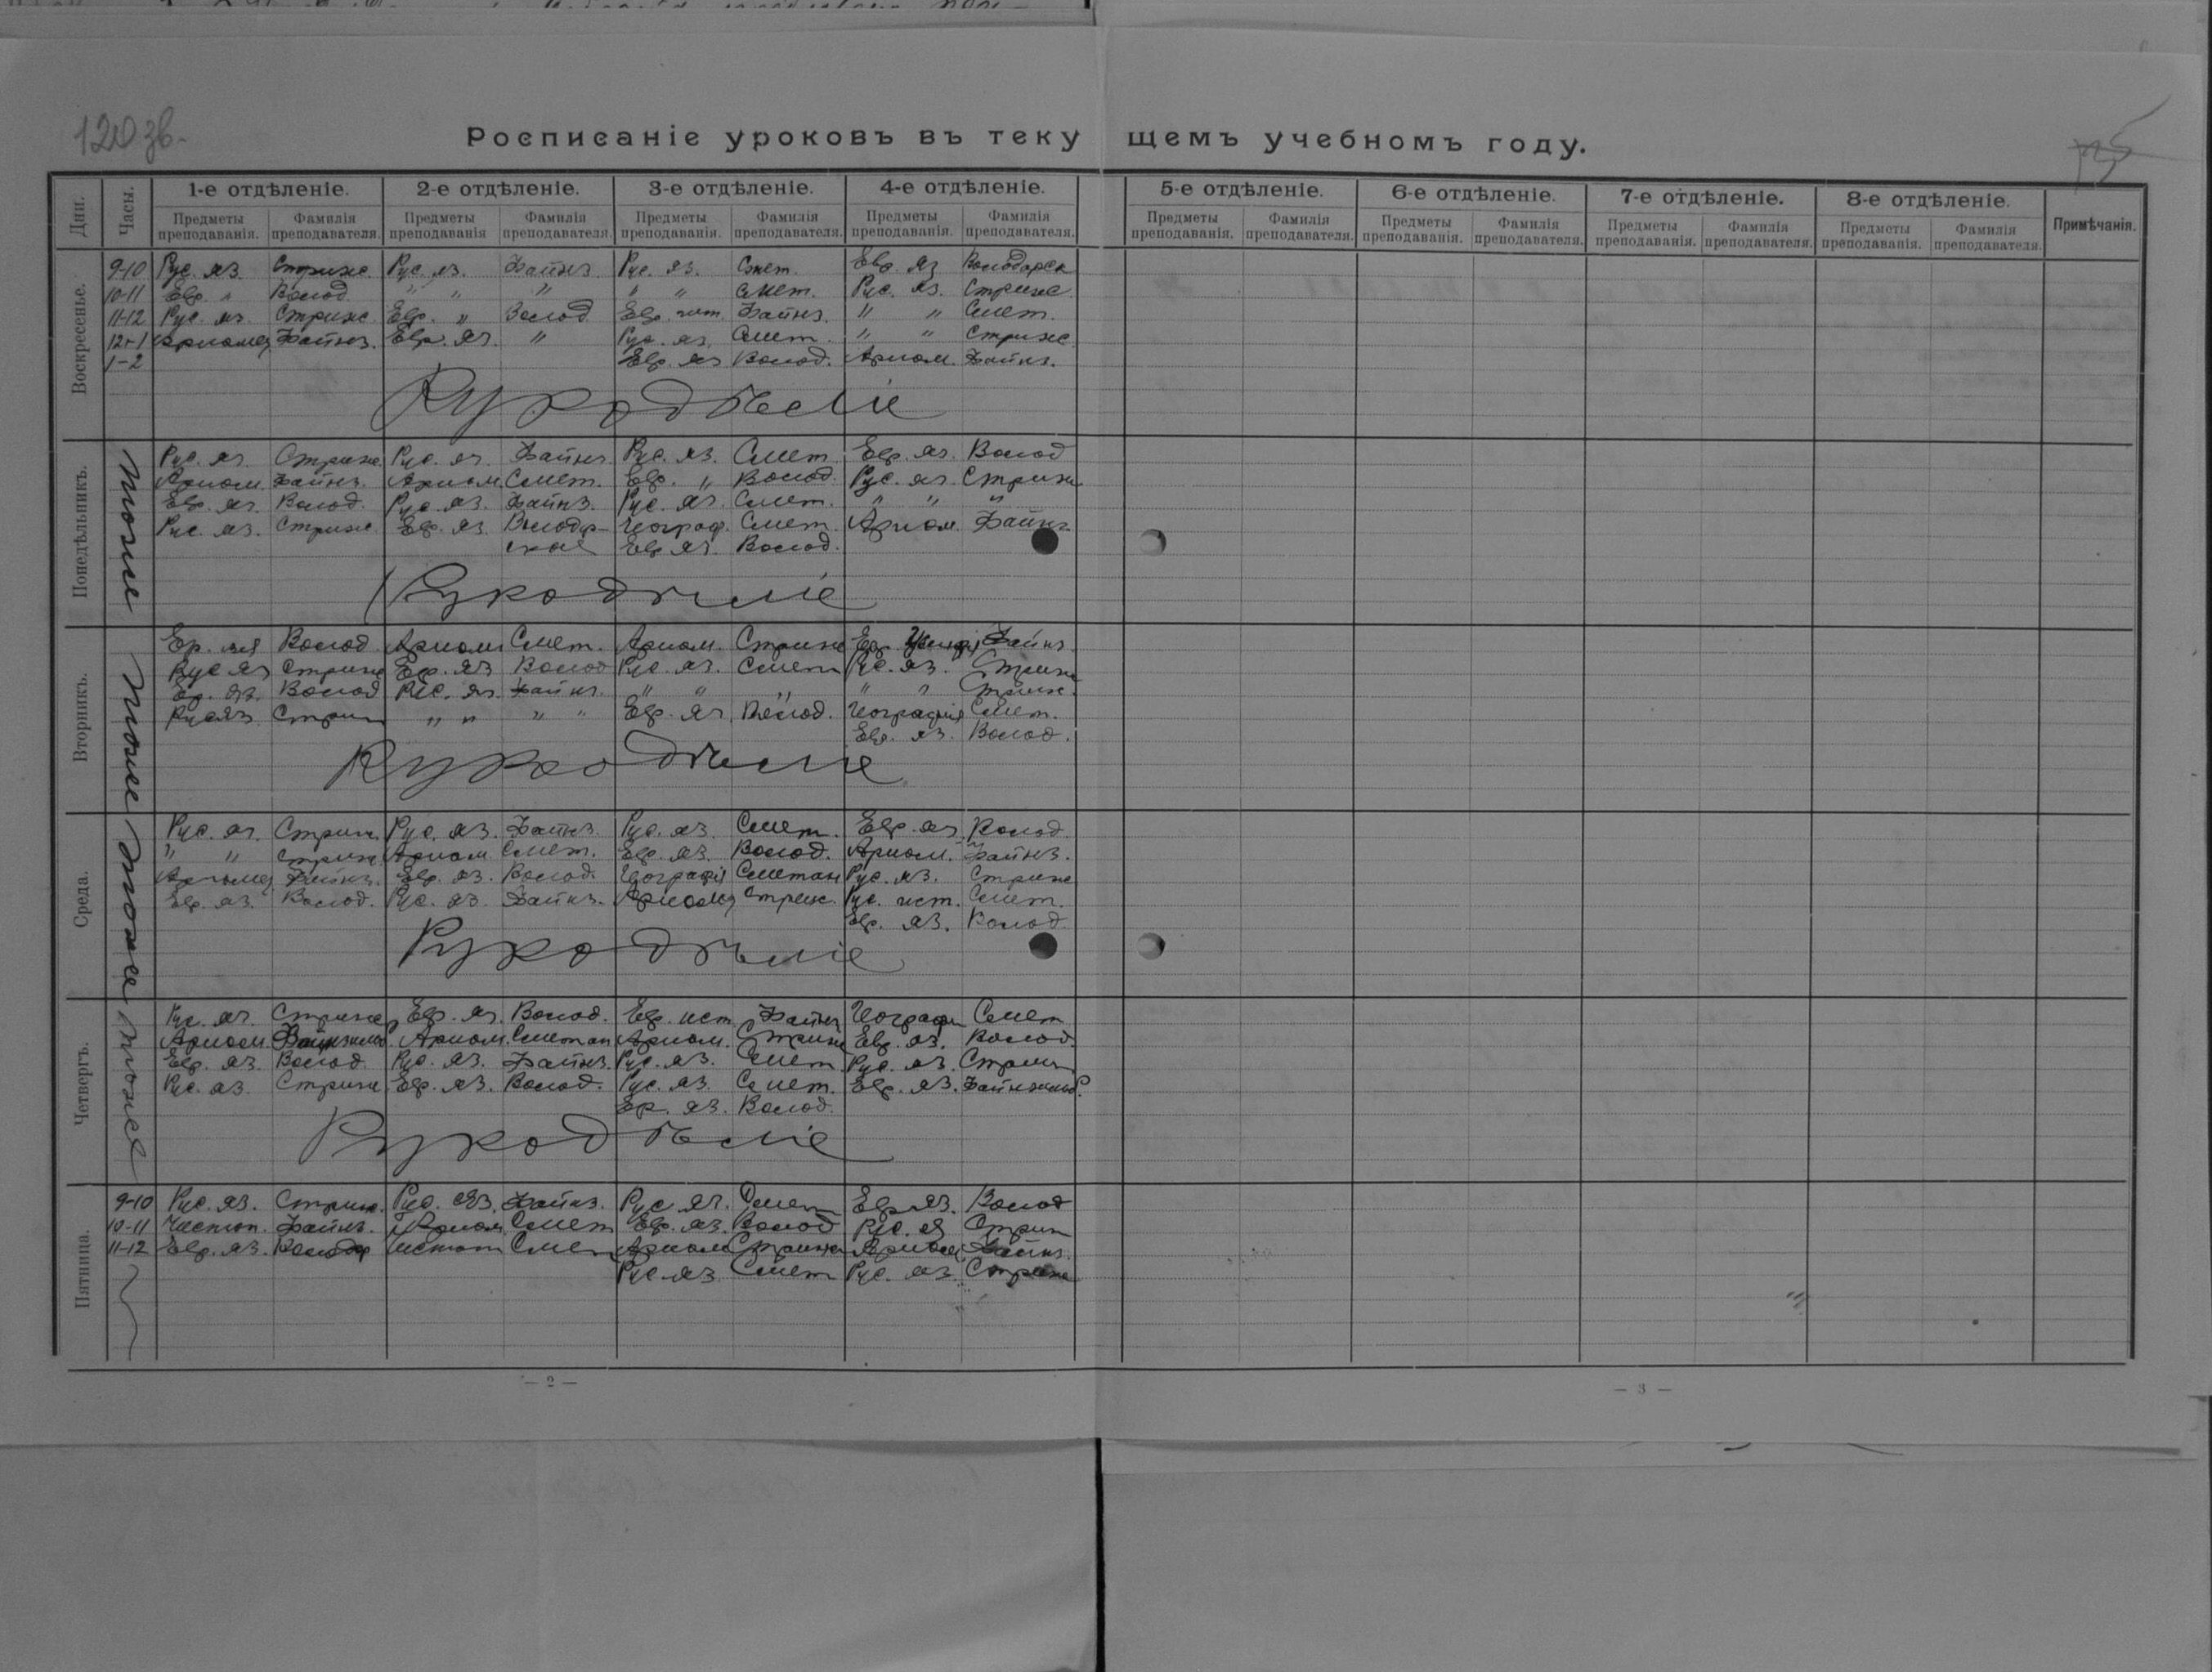 120 зв.
Росписаніе уроковъ въ текущемъ учебномъ году.
Дни. Часы. 1-е отдѣленіе. 2-е отдѣленіе. 3-е отдѣленіе. 4-е отдѣленіе. 5-е отдѣленіе. 6-е отдѣленіе. 7-е отдѣленіе. 8-е отдѣленіе. Примѣчанія.
Предметы преподаванія. Фамилія преподавателя. Предметы преподаванія Фамилія преподавателя. Предметы преподаванія. Фамилія преподавателя. Предметы преподаванія. Фамилія преподавателя. Предметы преподаванія. Фамилія преподавателя. Предметы преподаванія. Фамилія преподавателя. Предметы преподаванія. Фамилія преподавателя. Предметы преподаванія. Фамилія преподавателя.
Воскресенье.
9-10 Рус. яз. Стриж. Рус. яз. Файнз. Рус. яз. Смет. Евр. яз Володарск
10-11 Евр. " Волод. " " " " " Смет. Рус. яз. Стриж.
11-12 Рус. яз. Стриж. Евр. " Волод Евр. Файнз. " " Смет.
12-1 Арифм. Файнз. Евр. яз. " Рус. яз. Смет. " " Стриж
1-2 Евр. яз Волод. Арифм. Файнз.
Рукодѣліе
Понедѣльникъ.
тоже
Рус. яз. Стриж. Рус. яз. Файнз Рус. яз. Смет. Евр. яз. Волод
Арифм. Файнз. Арифм. Смет. Евр. " Волод. Рус. яз. Стриж
Евр. яз. Волод. Рус. яз. Файнз. Рус. яз. Смет. " " "
Рус. яз. Стриж. Евр. яз. Володар- Географ. Смет. Арифм. Файнз.
ская Евр. яз. Волод.
Рукодѣліе
Вторникъ.
тоже
Ер. яз Волод. Арифм Смет. Арифм. Стриж Файнз.
Рус яз Стриж Евр. яз Волод Рус. яз. Смет Рус. яз. Стриж
Ер. яз. Волод Рус. яз. Файнз. " " " " " Стриж.
Рус яз Стриж " " " " Евр. яз. Волод. Географія Смет.
Евр. яз. Волод.
Рукодѣліе
Среда.
тоже
Рус. яз. Стриж. Рус. яз. Файнз. Рус. яз. Смет. Евр. яз. Волод.
" " Стриж Арифм. Смет. Евр. яз. Волод. Арифм. Файнз.
Арифм. Файнз. Евр. яз. Волод. Географія Сметан Рус. яз. Стриж
Евр. яз. Волод. Рус. яз. Файнз. Арифм. Стриж. Рус. ист. Смет.
Евр. яз. Волод.
Рукодѣліе
Четвергъ.
тоже
Рус. яз. Стриж Евр. яз. Волод. Евр. ист. Файнз Географ Смет
Арифм. Арифм. Сметан Арифм. Стриж Евр. яз. Волод
Евр. яз. Волод. Рус. яз. Файнз. Рус. яз. Смет Рус. яз. Стриж
Рус. яз. Стриж Евр. яз. Волод. Рус. яз. Смет. Евр. яз.
Ер. яз. Волод.
Рукодѣліе
Пятница.
9-10 Рус. яз. Стриж. Рус. яз. Файнз. Рус. яз. Смет Евр яз. Волод
10-11 Чистоп. Файнз. Арифм Смет Евр. яз. Волод Рус. яз Стриж
11-12 Евр. яз. Володар Чистоп Смет Арифм Стриж Арифм Файнз.
Рус. яз Смет Рус. яз. Стриж
— 2 —
— 3 —